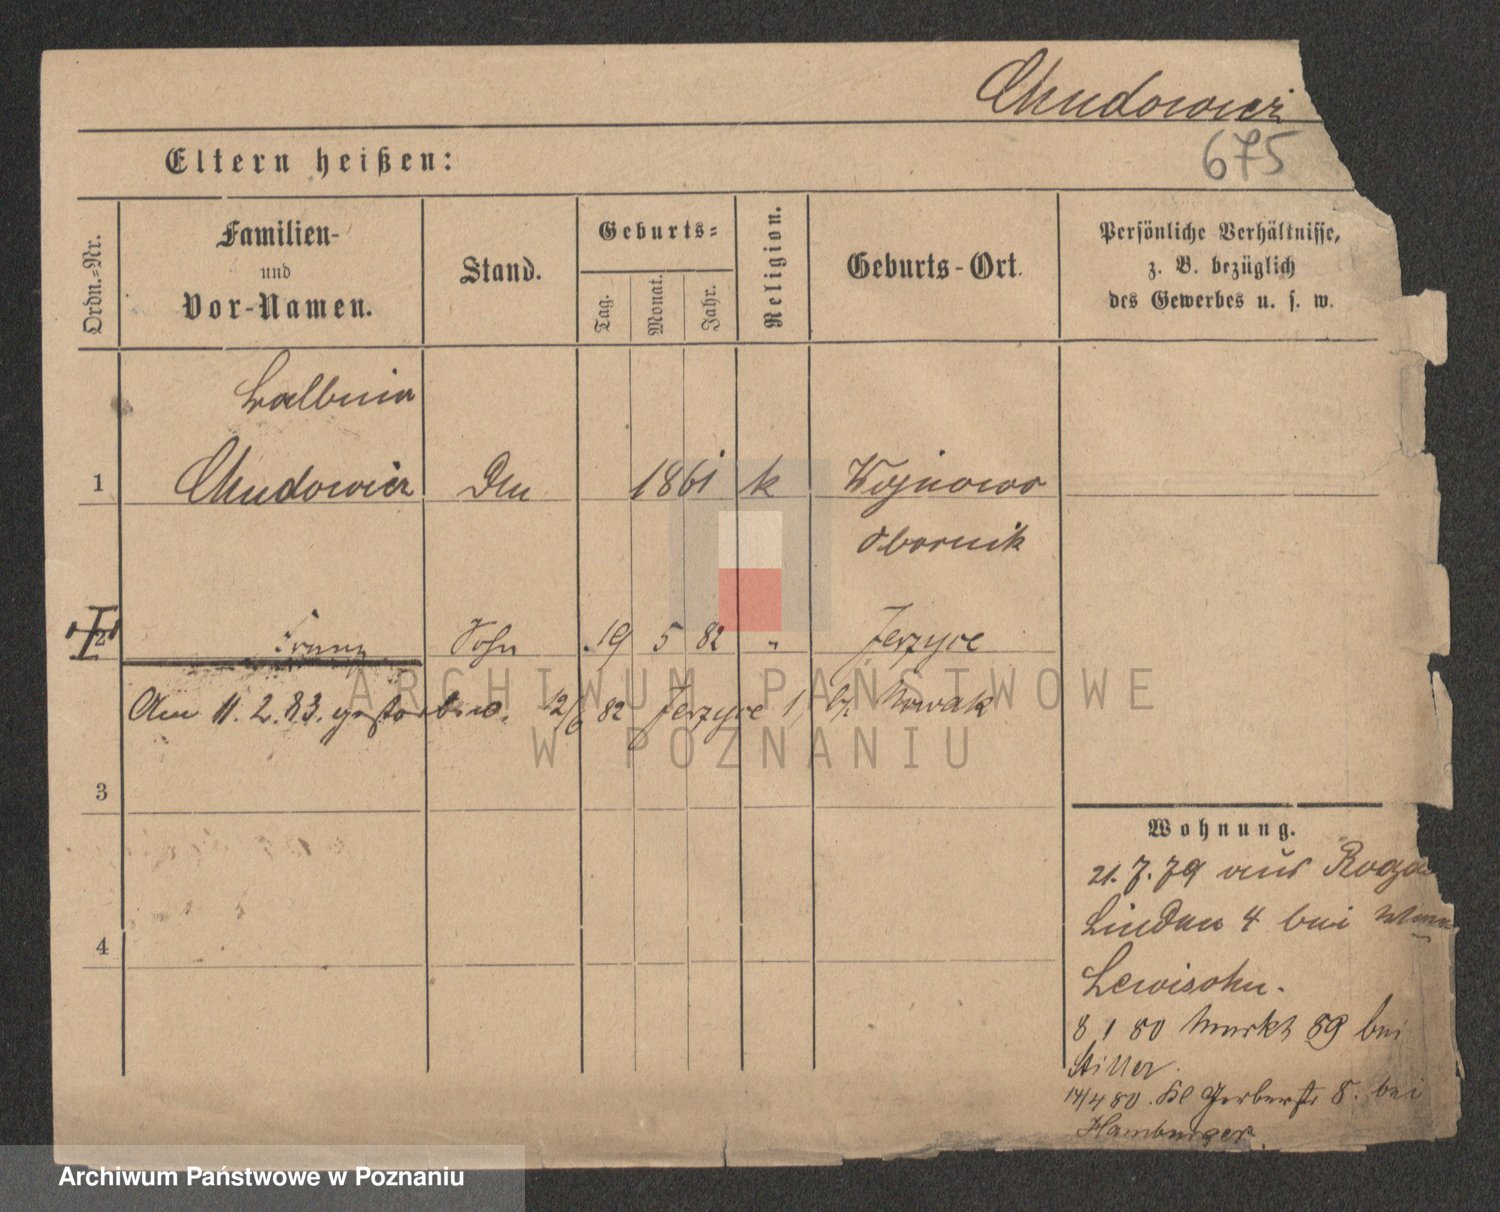 Chudowicz
675
Eltern heißen:
Ordn.-Nr.
Familien-
und
Vor-Namen.
Stand.
Geburts-
Tag.
Monat.
Jahr.
Religion.
Geburts-Ort.
Persönliche Verhältnisse,
z. B. bezüglich
des Gewerbes u. s. w.
1 Chudowicz 1861 k Wojnowo
Obornik
2 Franz Sohn 19 5 82 " Jerzyce
Am 11.2.83. gestorben. 12/6 82 Jerzyce 1, bei Nowak
3
4
Wohnung.
21.7.79 aus Roga
Linden 4 bei
Lewisohn.
8 1 80 Markt 89 bei
Stiller.
14/4 80. Kl Gerberstr 8. bei
Hamburger.
ARCHIWUM PAŃSTWOWE
W POZNANIU
Archiwum Państwowe w Poznaniu